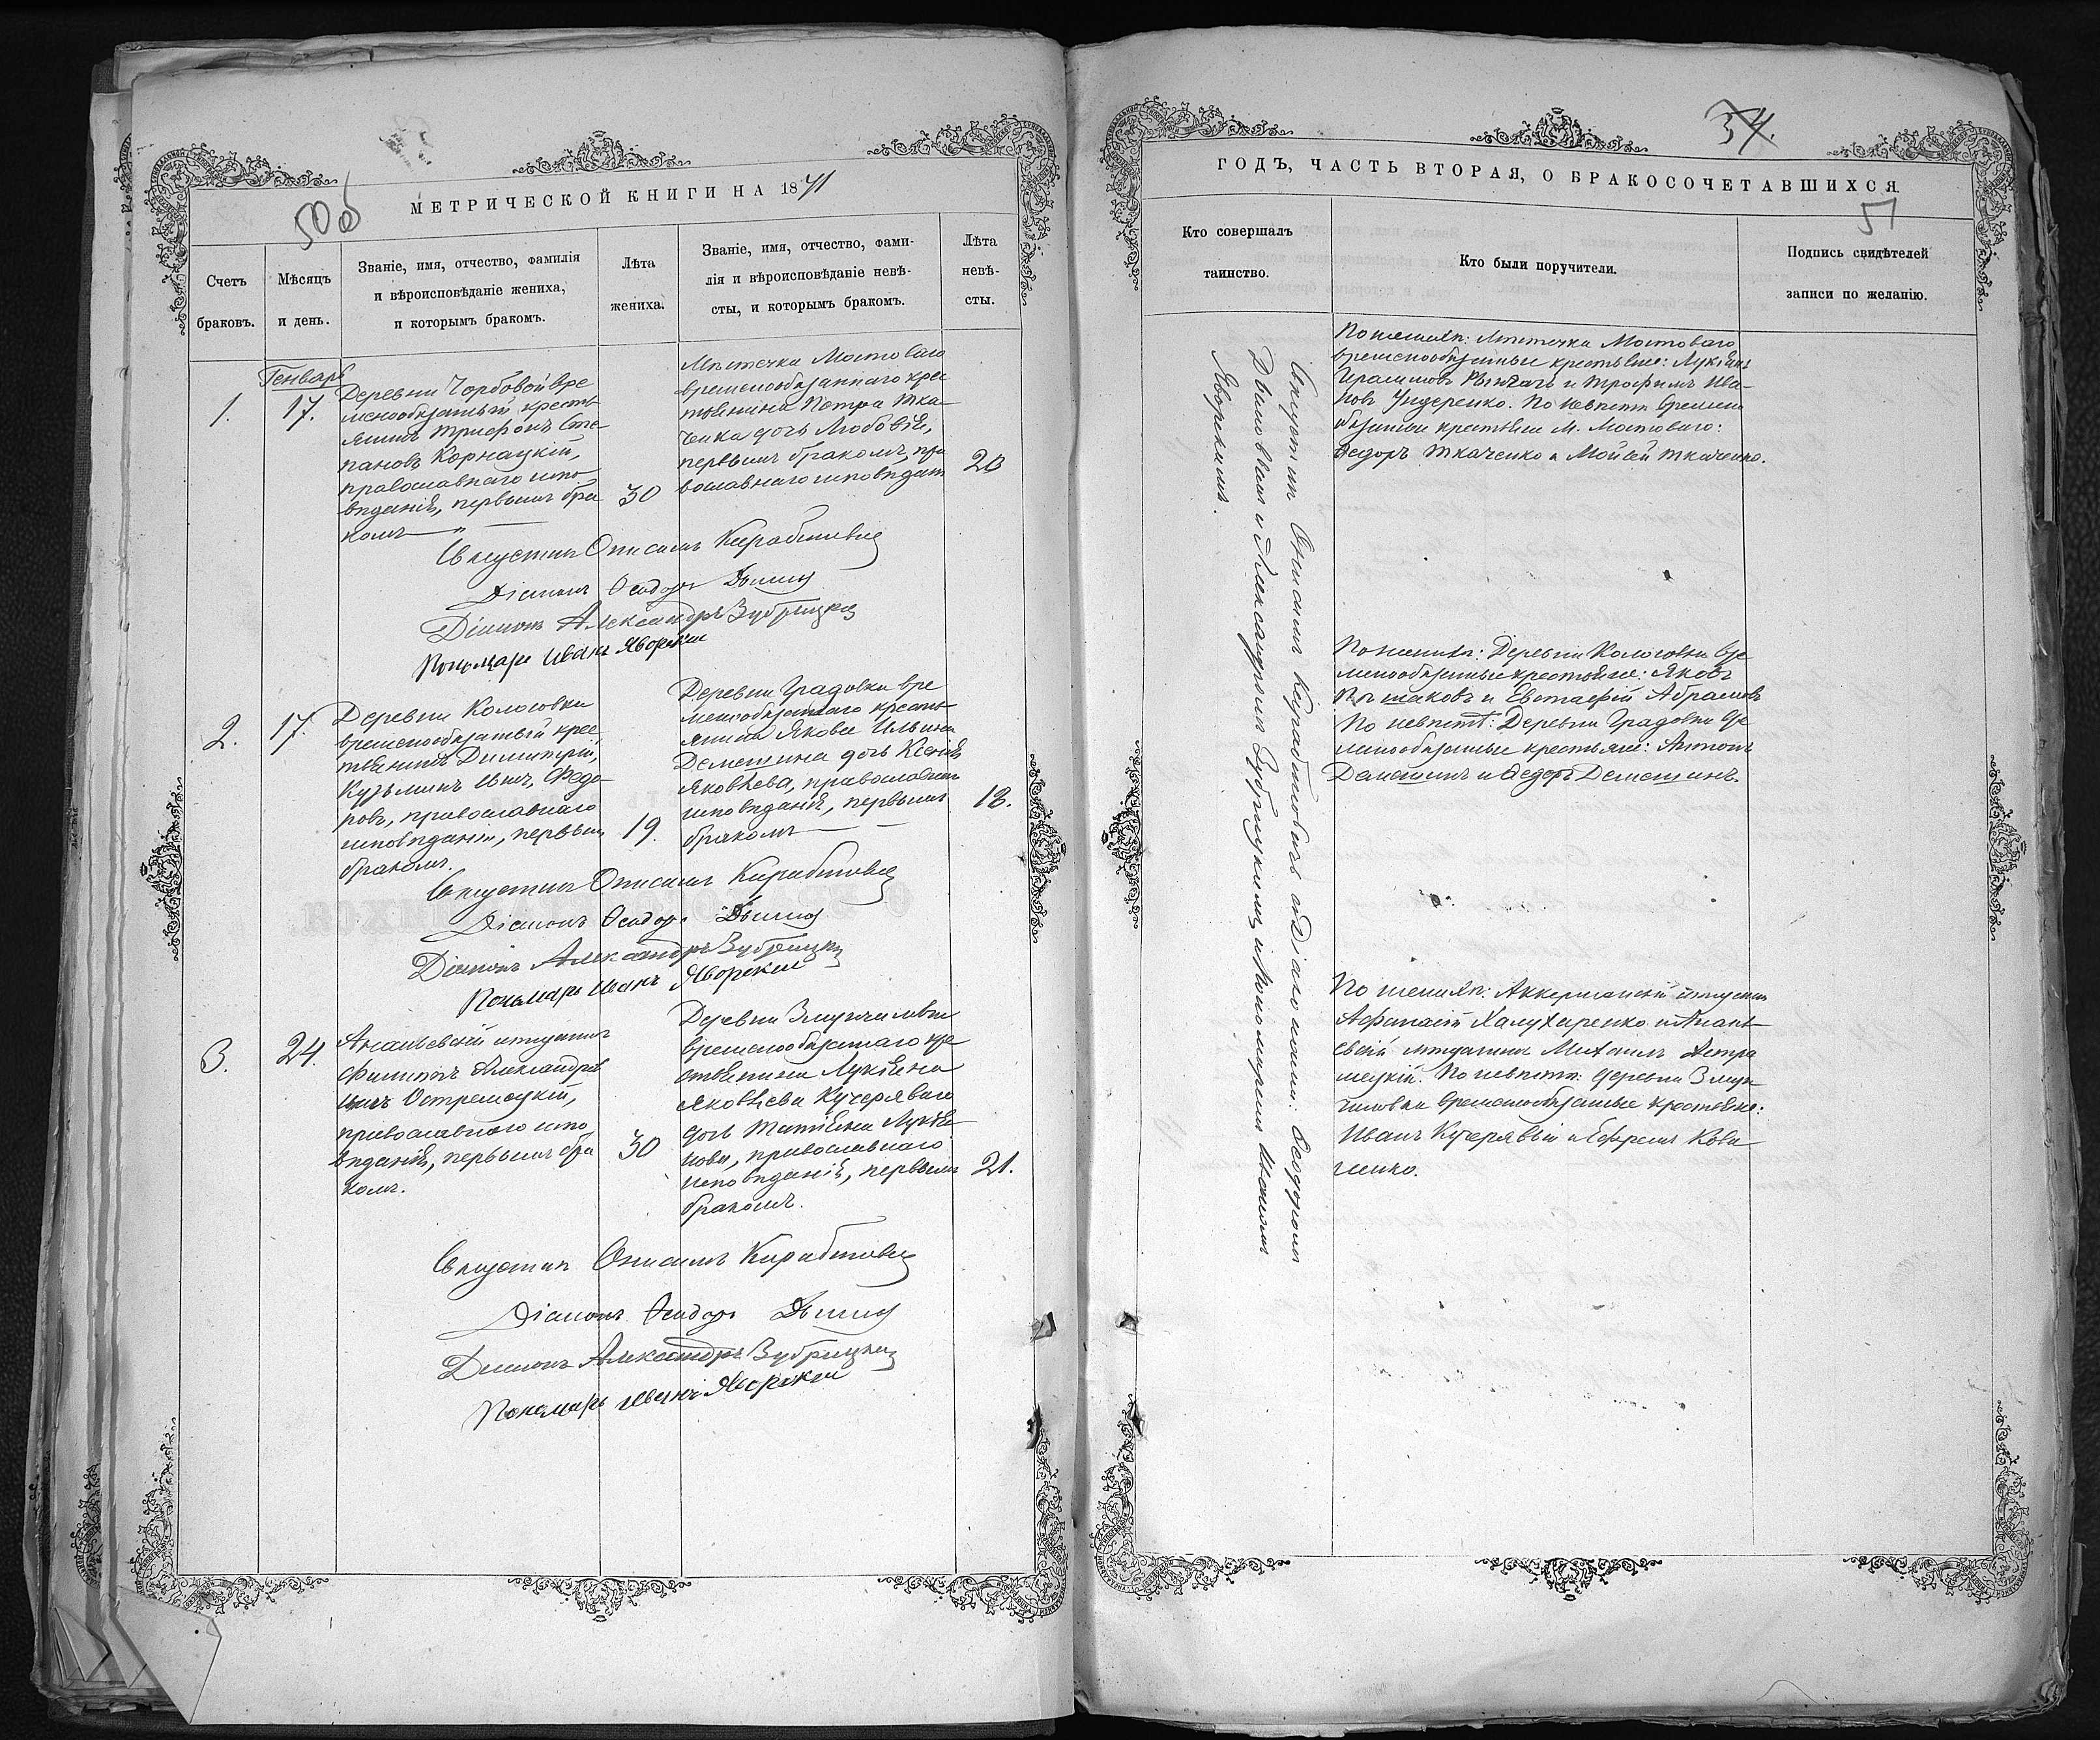 50об
МЕТРИЧЕСКОЙ КНИГИ НА 1871
Счетъ
браковъ.
Мѣсяцъ
и день.
Званіе, имя, отчество, фамилія
и вѣроисповѣданіе жениха,
и которымъ бракомъ.
Лѣта
жениха.
Званіе, имя, отчество, фами-
лія и вѣроисповѣданіе невѣ-
сты, и которымъ бракомъ.
Лѣта
невѣ-
сты.
Генварь
1.
17.
Деревни Чорбовой вре
менообязатый кресть
янинъ Трифонъ Сте
пановъ Корнацкій,
православнаго испо
вѣданія, первымъ бра
комъ
30
Мѣстечка Мостоваго
временообязаннаго крес
тьянина Петра Тка
ченка дочь Любовія,
первымъ бракомъ, пра
вославнаго исповѣдан
20
Священникъ Онисимъ
Діаконъ Ѳеодоръ
Діаконъ Александръ Зубрицкій
Пономарь Иванъ Яворскій
2.
17.
Деревни Колосовки
временообязатый крес
тьянинъ Димитрій
Кузьминъ сынъ, Федо
ровъ, православнаго
исповѣданія, первымъ
бракомъ.
19.
Деревни Градовки вре
менообязатаго кресть
янина Якова Ильина
Демешина дочь Ксенія
Яковлева, православнаго
исповѣданія, первымъ
бракомъ
18.
Священникъ Онисимъ
Діаконъ Ѳеодоръ
Діаконъ Александръ Зубрицкій
Пономарь Иванъ Яворскій
3.
24.
Ананьевскій мѣщанинъ
Филиппъ Александровъ
сынъ Остремецкій,
православнаго испо
вѣданія, первымъ бра
комъ.
30
Деревни Змунчиловки
временообязатаго кре
стьянина Лукіяна
Яковлева Кучеряваго
дочь Татіяна Лукія
нова, православнаго
исповѣданія, первымъ
бракомъ.
21.
Священникъ Онисимъ
Діаконъ Ѳеодоръ
Діаконъ Александръ Зубрицкій
Пономарь Иванъ Яворскій
51
ГОДЪ, ЧАСТЬ ВТОРАЯ, О БРАКОСОЧЕТАВШИХСЯ.
Кто совершалъ
таинство.
Кто были поручители.
Подпись свидѣтелей
записи по желанію.
Священникъ Онисимъ съ Діаконами: Ѳеодоромъ
и Александромъ Зубрицкимъ и Пономаремъ Иваномъ
Яворскимъ.
По женихѣ: Мѣстечка Мостоваго
временообязатые крестьяне: Лукіянъ
и Трофимъ Ива-
новъ Ундеренко. По невѣстѣ времено
обязатые крестьяне М. Мостоваго:
Ѳедоръ Ткаченко и Мойсей Ткаченко.
По женихѣ: Деревни Колосовки вре
менообязатые крестьяне: Яковъ
и Евстафій Абрамовъ
По невѣстѣ: Деревни Градовки вре
менообязатые крестьяне: Антонъ
Демешинъ и Ѳедоръ Демешинъ.
По женихѣ: Аккерманскій мѣщанинъ
Афанасій и Анань
евскій мѣщанинъ Михаилъ Остре
мецкій. По невѣстѣ: деревни Змун
чиловки временообязатые крестьяне:
Иванъ Кучерявый и Ефремъ Кова
ленко.